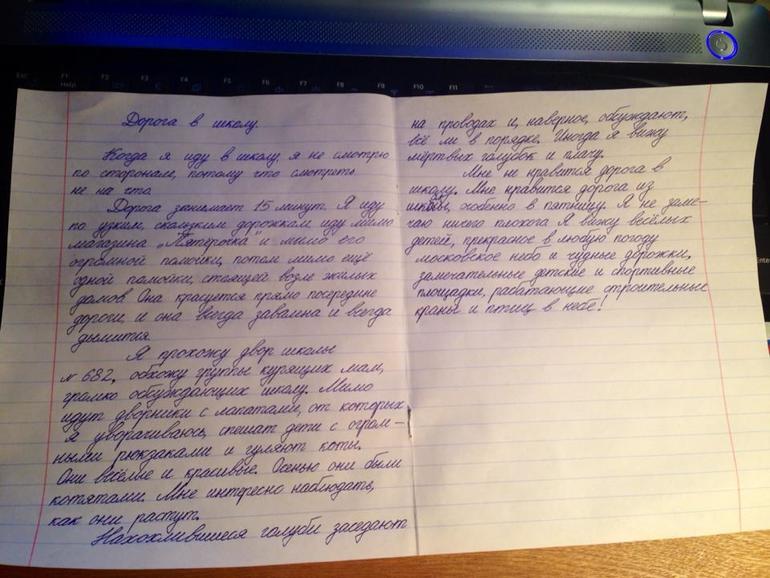 Дорога в школу.
Когда я иду в школу, я не смотрю
по сторонам, потому что смотреть
не на что.
Дорога занимает 15 минут. Я иду
по узким, скользким дорожкам, иду мимо
магазина „Пятёрочка" и мимо его
огромной помойки, потом мимо ещё
одной помойки, стоящей возле жилых
домов. Она красуется прямо посередине
дороги, и она всегда завалена и всегда
дымится.
Я прохожу двор школы
№ 682, обхожу группы курящих мам,
громко обсуждающих школу. Мимо
идут дворники с лопатами, от которых
я уворачиваюсь, спешат дети с огром-
ными рюкзаками и гуляют коты.
Они весёлые и красивые. Осенью они были
котятами. Мне интересно наблюдать,
как они растут.
Нахохлившиеся голуби заседают
на проводах и, наверное, обсуждают,
всё ли в порядке. Иногда я вижу
мёртвых голубок и плачу.
Мне не нравится дорога в
школу. Мне нравится дорога из
школы, особенно в пятницу. Я не заме-
чаю ничего плохого. Я вижу весёлых
детей, прекрасное в любую погоду
московское небо и чудные дорожки,
замечательные детские и спортивные
площадки, работающие строительные
краны и птиц в небе!
F1
Help
F2
F3
F4
F5
F6
F7
F8
F9
F10
F11
Enter